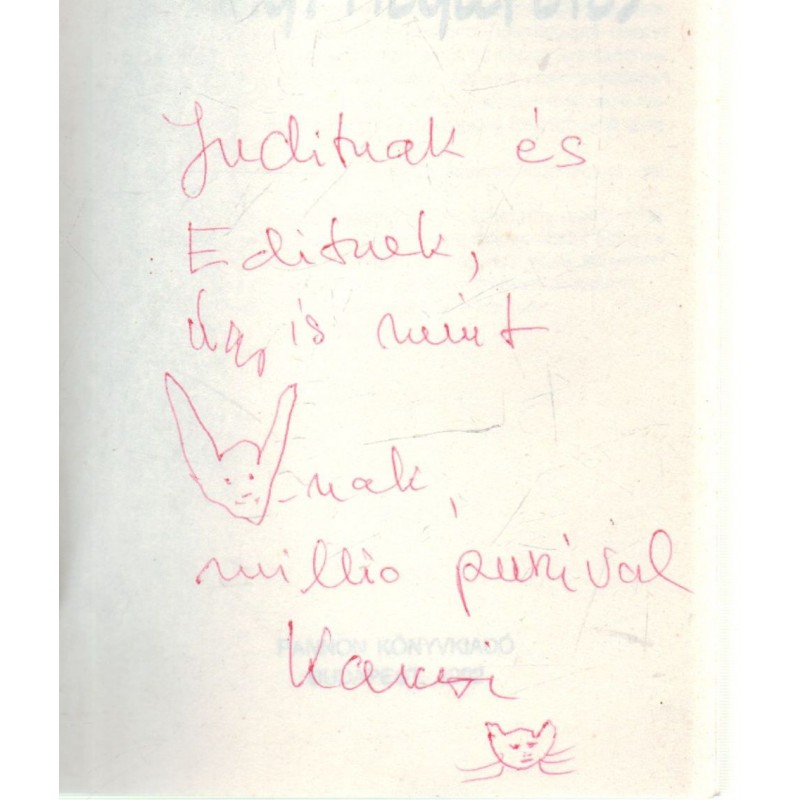 Juditnak és
Editnek,
úgy is mint
-nak,
millió puszival
PANNON KÖNYVKIADÓ
BUDAPEST, 1992